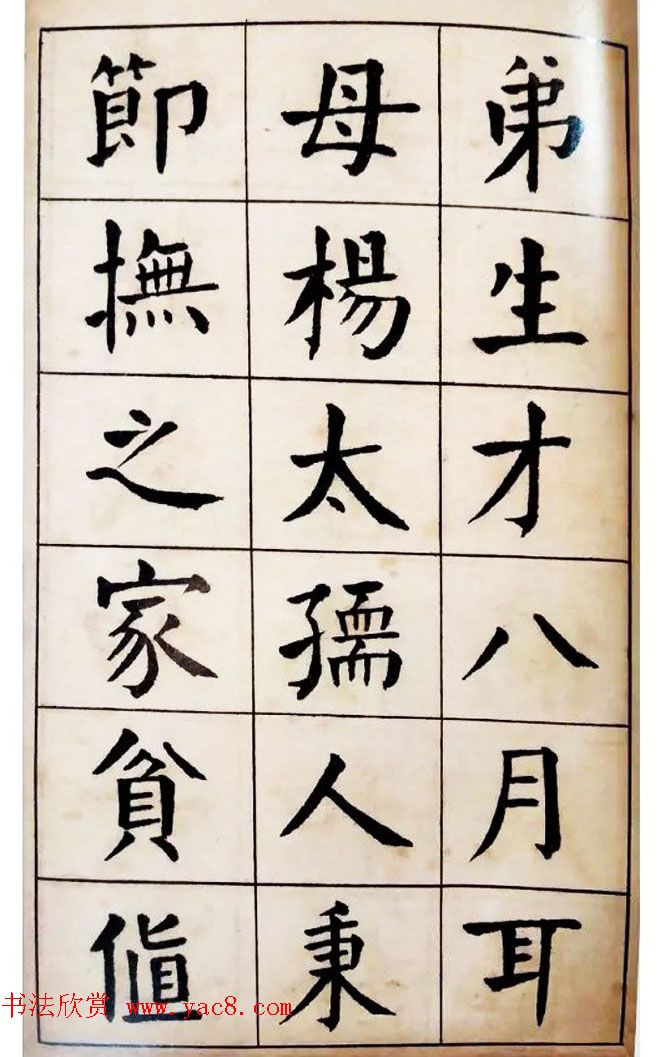 弟生才八月耳
母楊太孺人秉
節撫之家貧値
书法欣赏 www.yac8.com